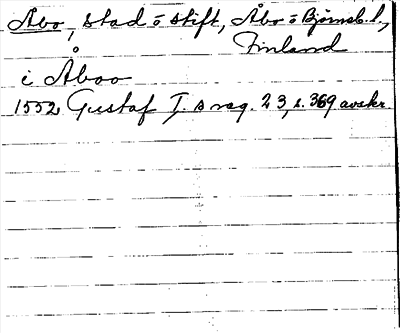 Åbo, stad o stift, Åbo o Björneb. l.,
Finland
i Åboo
1552 Gustaf I. s reg. 23, s. 369 avskr.